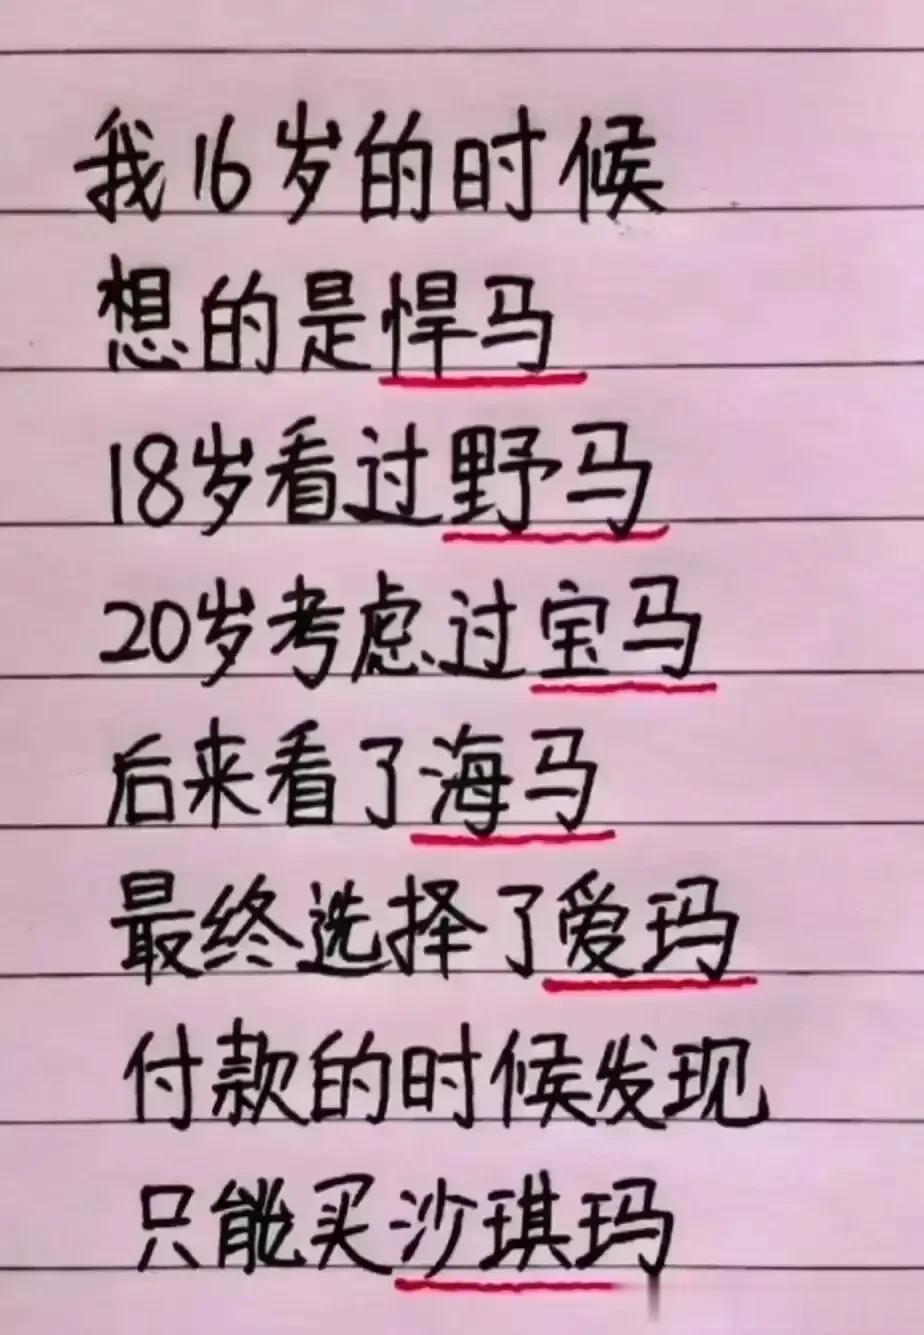 我16岁的时候
想的是悍马
18岁看过野马
20岁考虑过宝马
后来看了海马
最终选择了爱玛
付款的时候发现
只能买沙琪玛